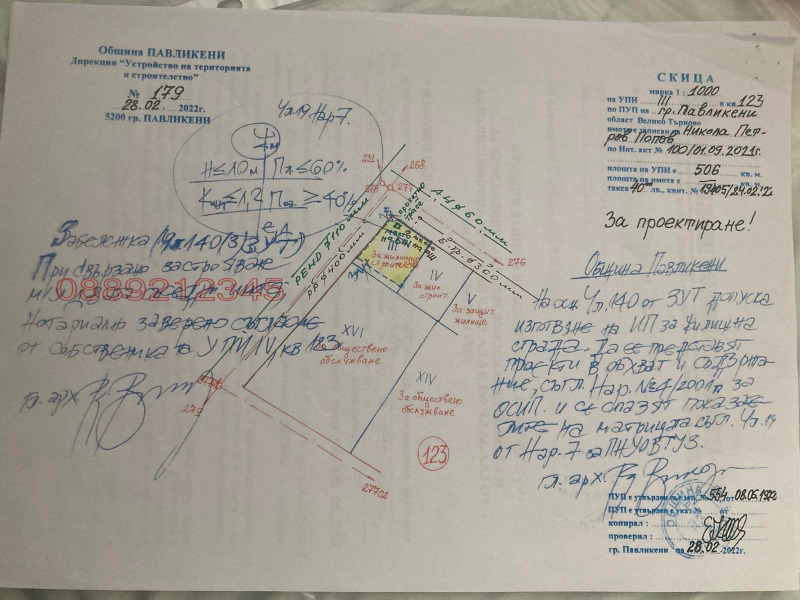 Община ПАВЛИКЕНИ
Дирекция "Устройство на територията
и строителство"
№ 179
28.02 2022г.
5200 гр. ПАВЛИКЕНИ
Чл.19 Нар 7.
H≤10м Пл.≤60%
Кинт≤1,2 Поз. ≥40%
Забележка (Чл.140/3/ЗУТ)
При свързано застрояване
м/у
0889212345
Нотариално заверено съгласие
от собственика на УПИ IV, кв 123
гл. арх.
СКИЦА
мярка 1 : 1000
на УПИ III в кв. 123
по ПУП на гр. Павликени
област Велико Търново
имота е записан на Никола Пет-
ров Попов
по Нот. акт № 100/01.09.2021г.
площта на УПИ е 506 кв. м.
площта на имота е — кв. м.
такса 40⁰⁰ лв., квит. № 19405/24.02.22
За проектиране!
Община Павликени
На осн. Чл.140 от ЗУТ допуска
изготвяне на ИП за жилищна
страда. Да се представят
проекти в обхват и съдържа-
ние, съгл. Нар. №4/2001г. за
ОСИП. и се спазят показа-
на матрицата съгл. Чл. 19
от Нар. 7 за ПНУОВТУЗ.
гл. арх.
231
268
277
276
А.Ц ⌀60 мм
РЕНD ⌀110 мм
РР ⌀400 мм
Б.тр. ⌀300 мм
III
За жилищно
строителство
IV
За жил.
строит.
V
За защит.
жилище
XVI
За обществено
обслужване
XIV
За обществено
обслужване
279
123
27702
ПУП е утвърден със зап. № 554 от 08.05.1972
ПУП е утвърден с указ № от
копирал :
проверил :
гр. Павликени на 28.02 2022г.